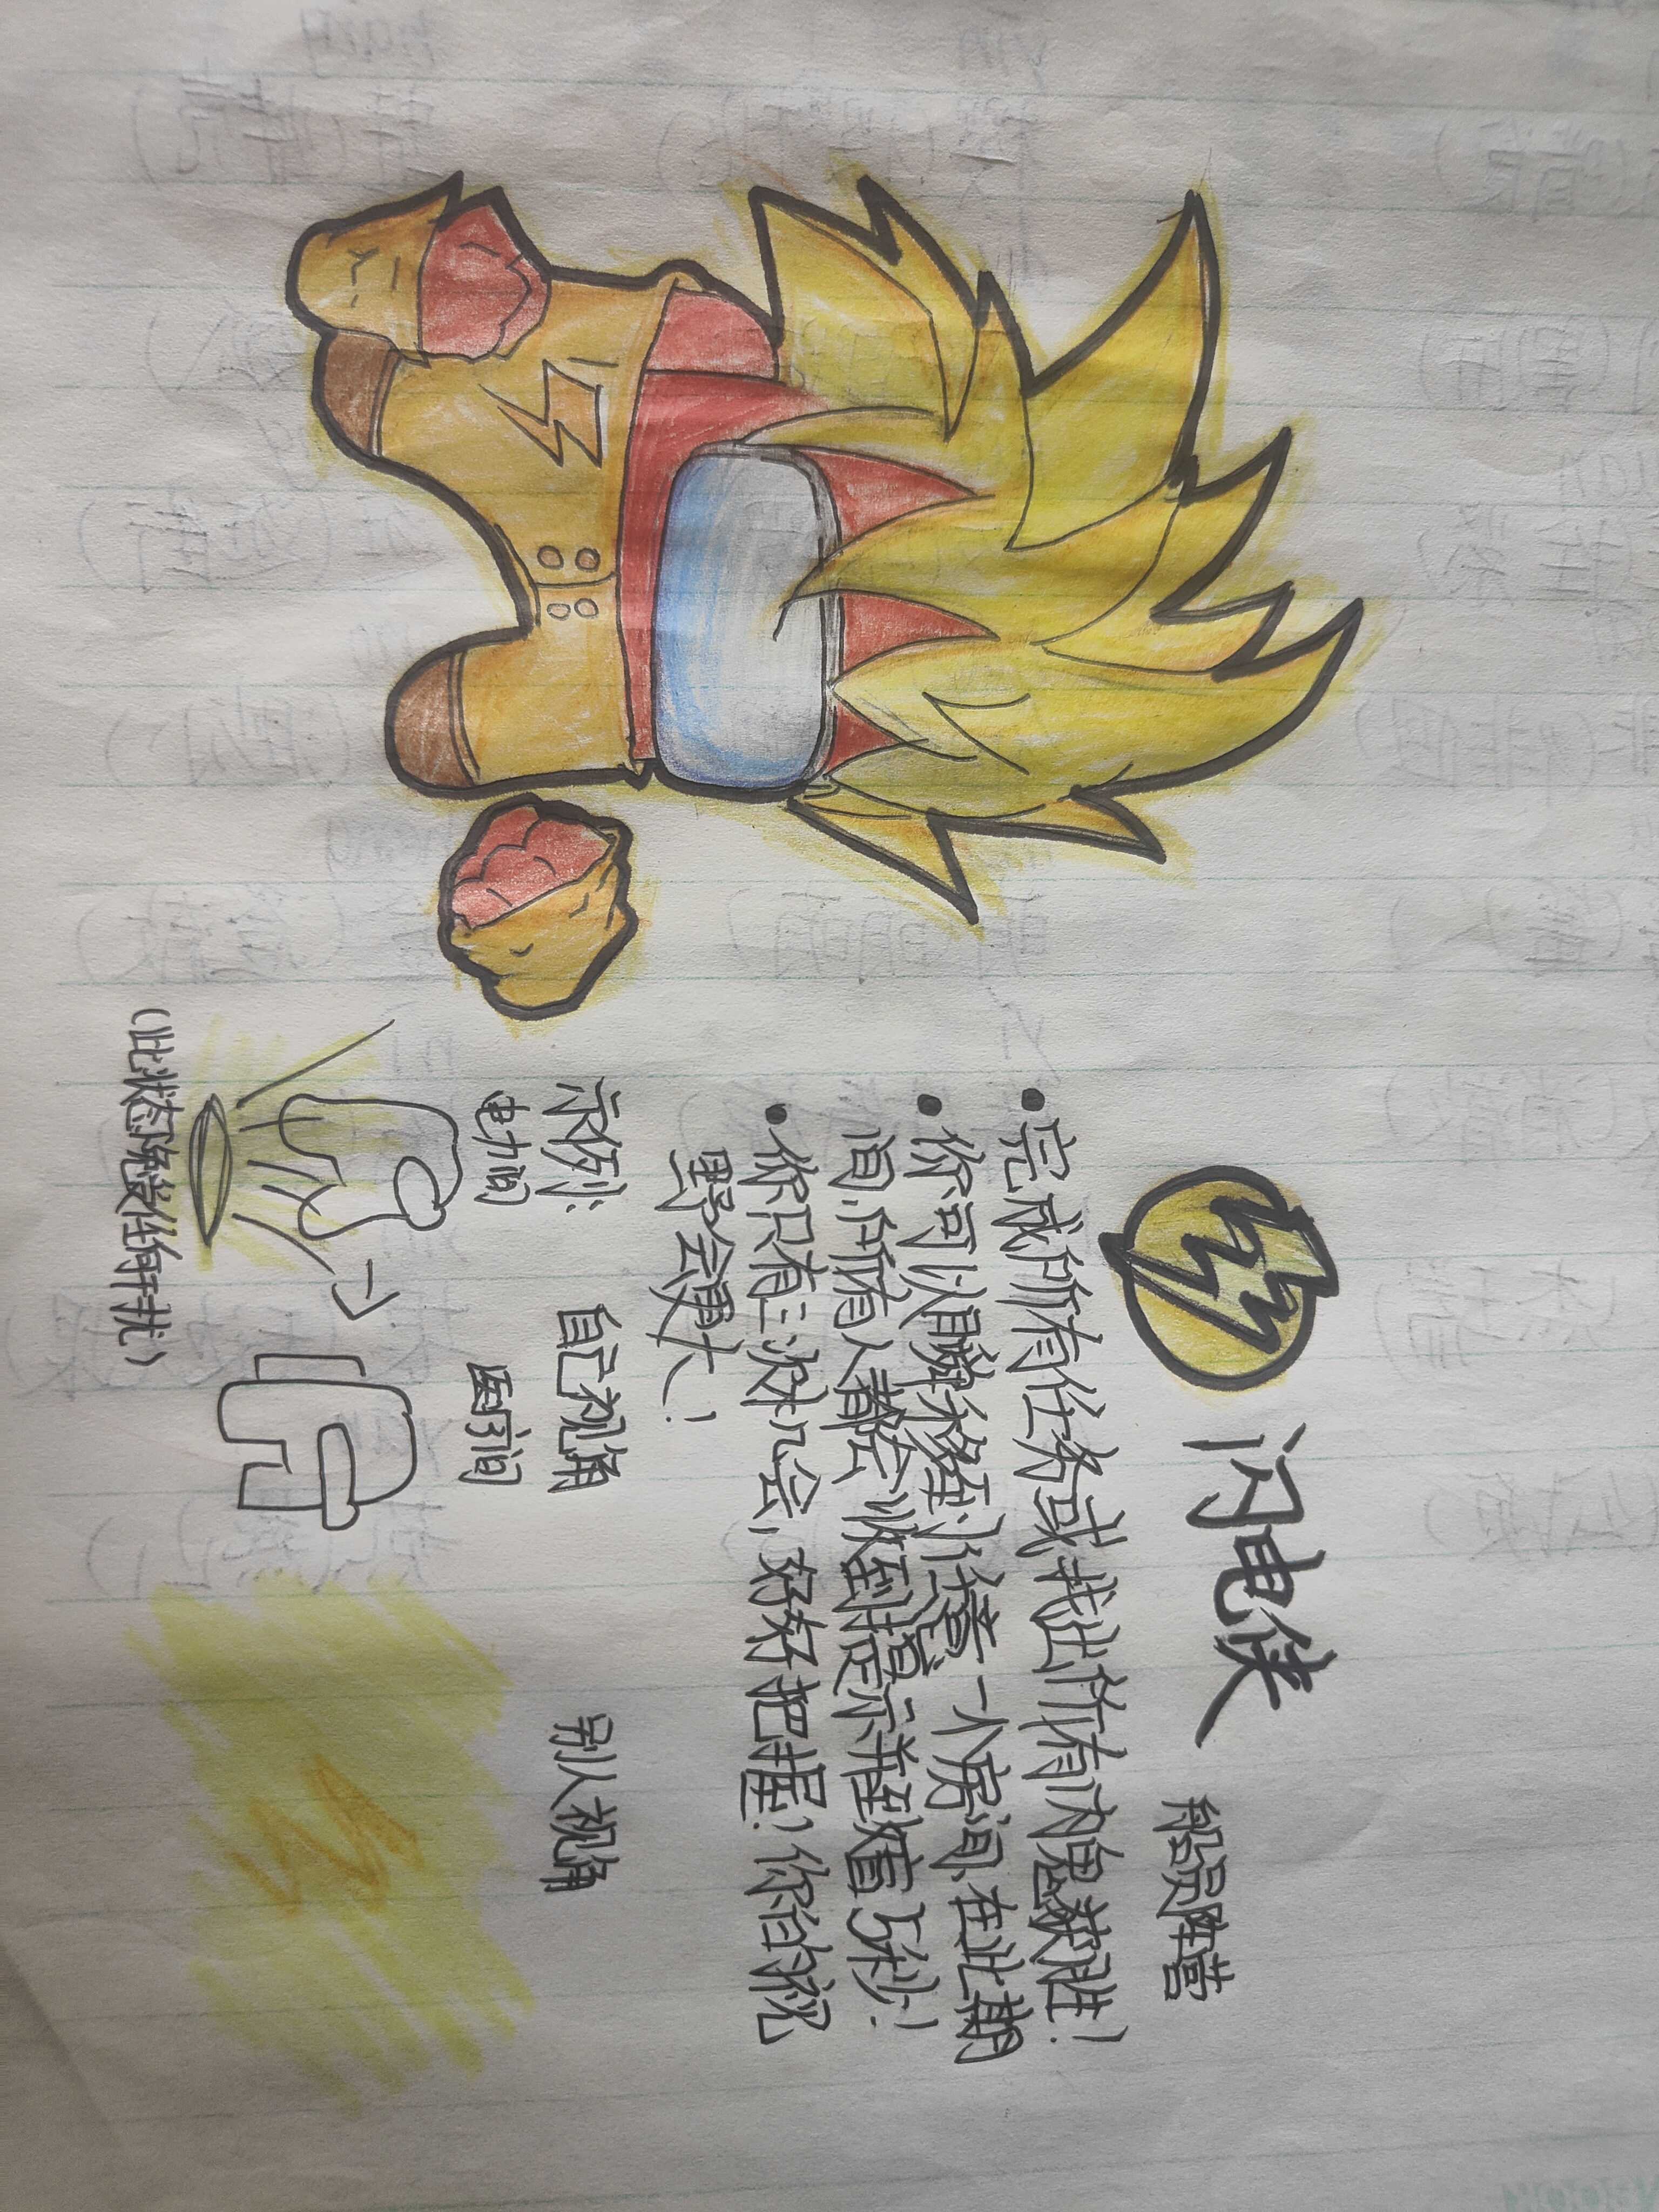 闪电侠
船员阵营
完成所有任务或找出所有内鬼获胜！
你可以瞬移到任意一个房间，在此期
间，所有人都会收到提示并致盲5秒！
你只有三次机会，好好把握！你的视
野会更大！
示例：
自己视角
别人视角
电力间
医疗间
（此状态下免疫任何干扰）